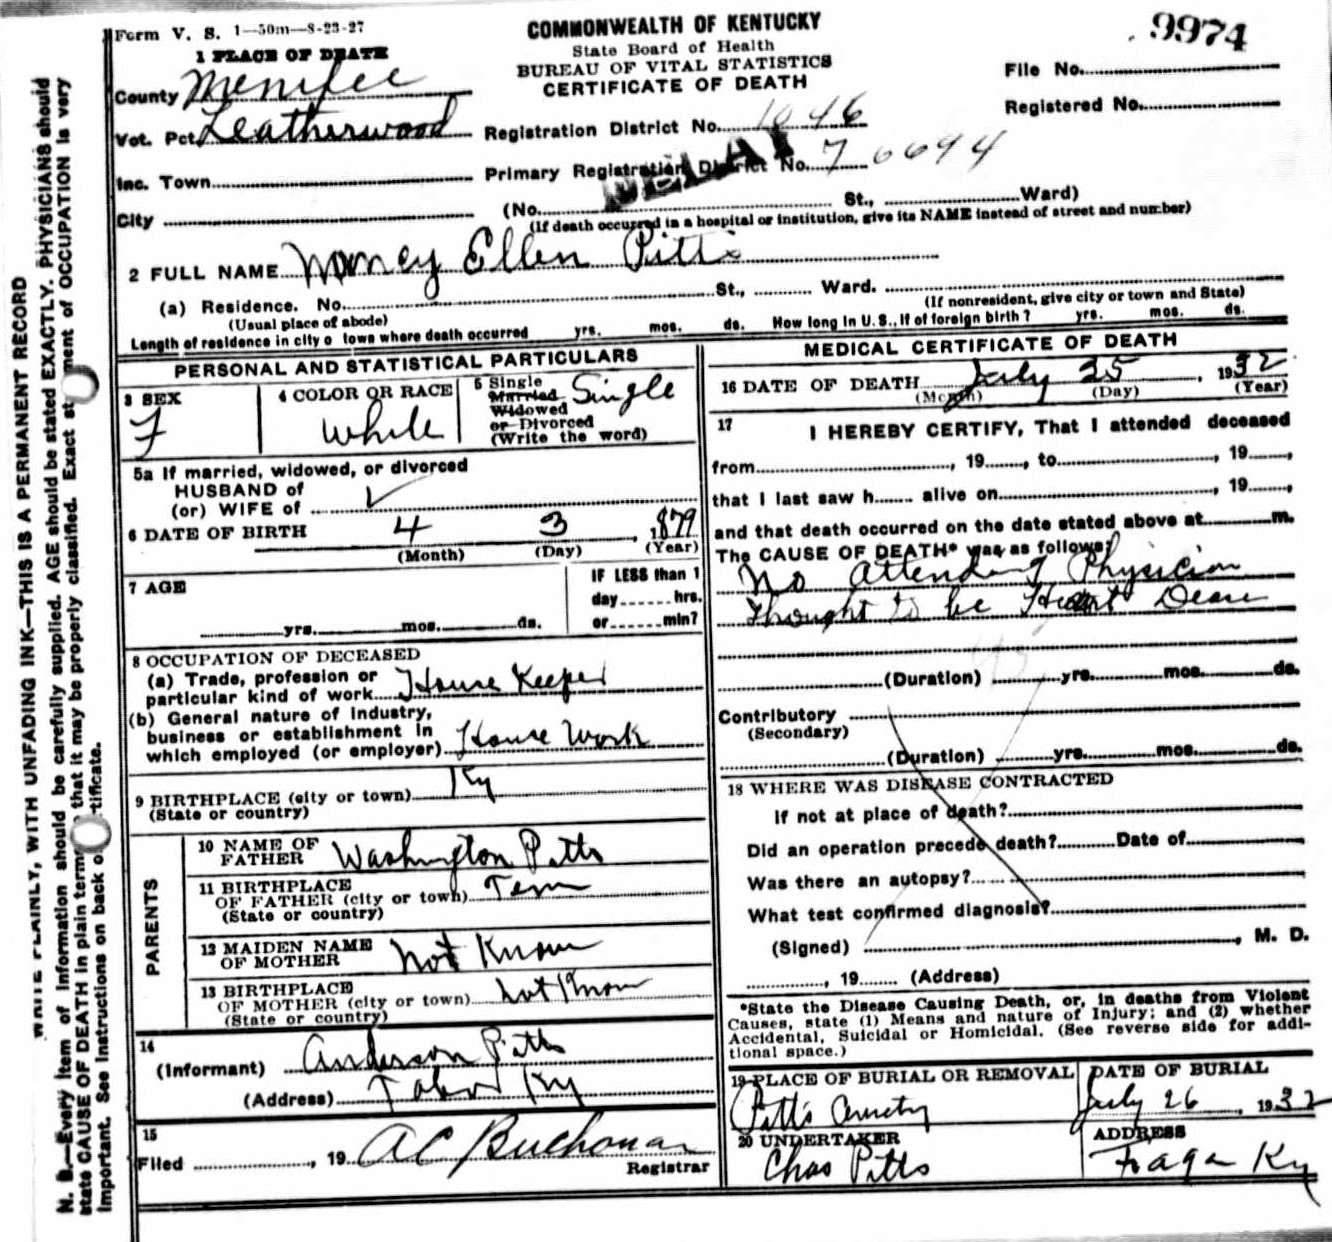 Form V. S. 1—50m—8-23-27
COMMONWEALTH OF KENTUCKY
State Board of Health
BUREAU OF VITAL STATISTICS
CERTIFICATE OF DEATH
9974
File No.
Registered No.
1 PLACE OF DEATH
County Menifee
Vot. Pct. Leatherwood
Registration District No. 1046
Inc. Town
Primary Registration District No. 7 6694
DELAY
City
(No. St., Ward)
(If death occurred in a hospital or institution, give its NAME instead of street and number)
2 FULL NAME Nancy Ellen Pitts
(a) Residence. No. St., Ward.
(Usual place of abode)
(If nonresident, give city or town and State)
Length of residence in city o town where death occurred yrs. mos. ds. How long in U. S., if of foreign birth? yrs. mos. ds.
PERSONAL AND STATISTICAL PARTICULARS
3 SEX
F
4 COLOR OR RACE
White
5 Single
Married
Widowed
or Divorced
(Write the word)
Single
5a If married, widowed, or divorced
HUSBAND of
(or) WIFE of
6 DATE OF BIRTH 4 3, 1879
(Month) (Day) (Year)
7 AGE
yrs. mos. ds.
IF LESS than 1
day hrs.
or min?
8 OCCUPATION OF DECEASED
(a) Trade, profession or
particular kind of work House Keeper
(b) General nature of industry,
business or establishment in
which employed (or employer) House Work
9 BIRTHPLACE (city or town) Ky
(State or country)
PARENTS
10 NAME OF
FATHER Washington Pitts
11 BIRTHPLACE
OF FATHER (city or town) Tenn
(State or country)
12 MAIDEN NAME
OF MOTHER Not Know
13 BIRTHPLACE
OF MOTHER (city or town) Not Know
(State or country)
14
(Informant) Anderson Pitts
(Address) Tabor Ky
15
Filed , 19 AC Buchanan
Registrar
MEDICAL CERTIFICATE OF DEATH
16 DATE OF DEATH July 25, 1932
(Month) (Day) (Year)
17
I HEREBY CERTIFY, That I attended deceased
from , 19 , to , 19 ,
that I last saw h alive on , 19 ,
and that death occurred on the date stated above at m.
The CAUSE OF DEATH* was as follows:
No attending Physician
Thought to be Heart Dease
(Duration) yrs. mos. ds.
Contributory
(Secondary)
(Duration) yrs. mos. ds.
18 WHERE WAS DISEASE CONTRACTED
If not at place of death?
Did an operation precede death? Date of
Was there an autopsy?
What test confirmed diagnosis?
(Signed) , M. D.
, 19 (Address)
*State the Disease Causing Death, or, in deaths from Violent
Causes, state (1) Means and nature of Injury; and (2) whether
Accidental, Suicidal or Homicidal. (See reverse side for addi-
tional space.)
19 PLACE OF BURIAL OR REMOVAL
Pitts Cemetry
DATE OF BURIAL
July 26, 1932
20 UNDERTAKER
Chas Pitts
ADDRESS
Fraga Ky
WRITE PLAINLY, WITH UNFADING INK—THIS IS A PERMANENT RECORD
N. B.—Every item of information should be carefully supplied. AGE should be stated EXACTLY. PHYSICIANS should
state CAUSE OF DEATH in plain terms that it may be properly classified. Exact st ment of OCCUPATION is very
important. See instructions on back o tificate.